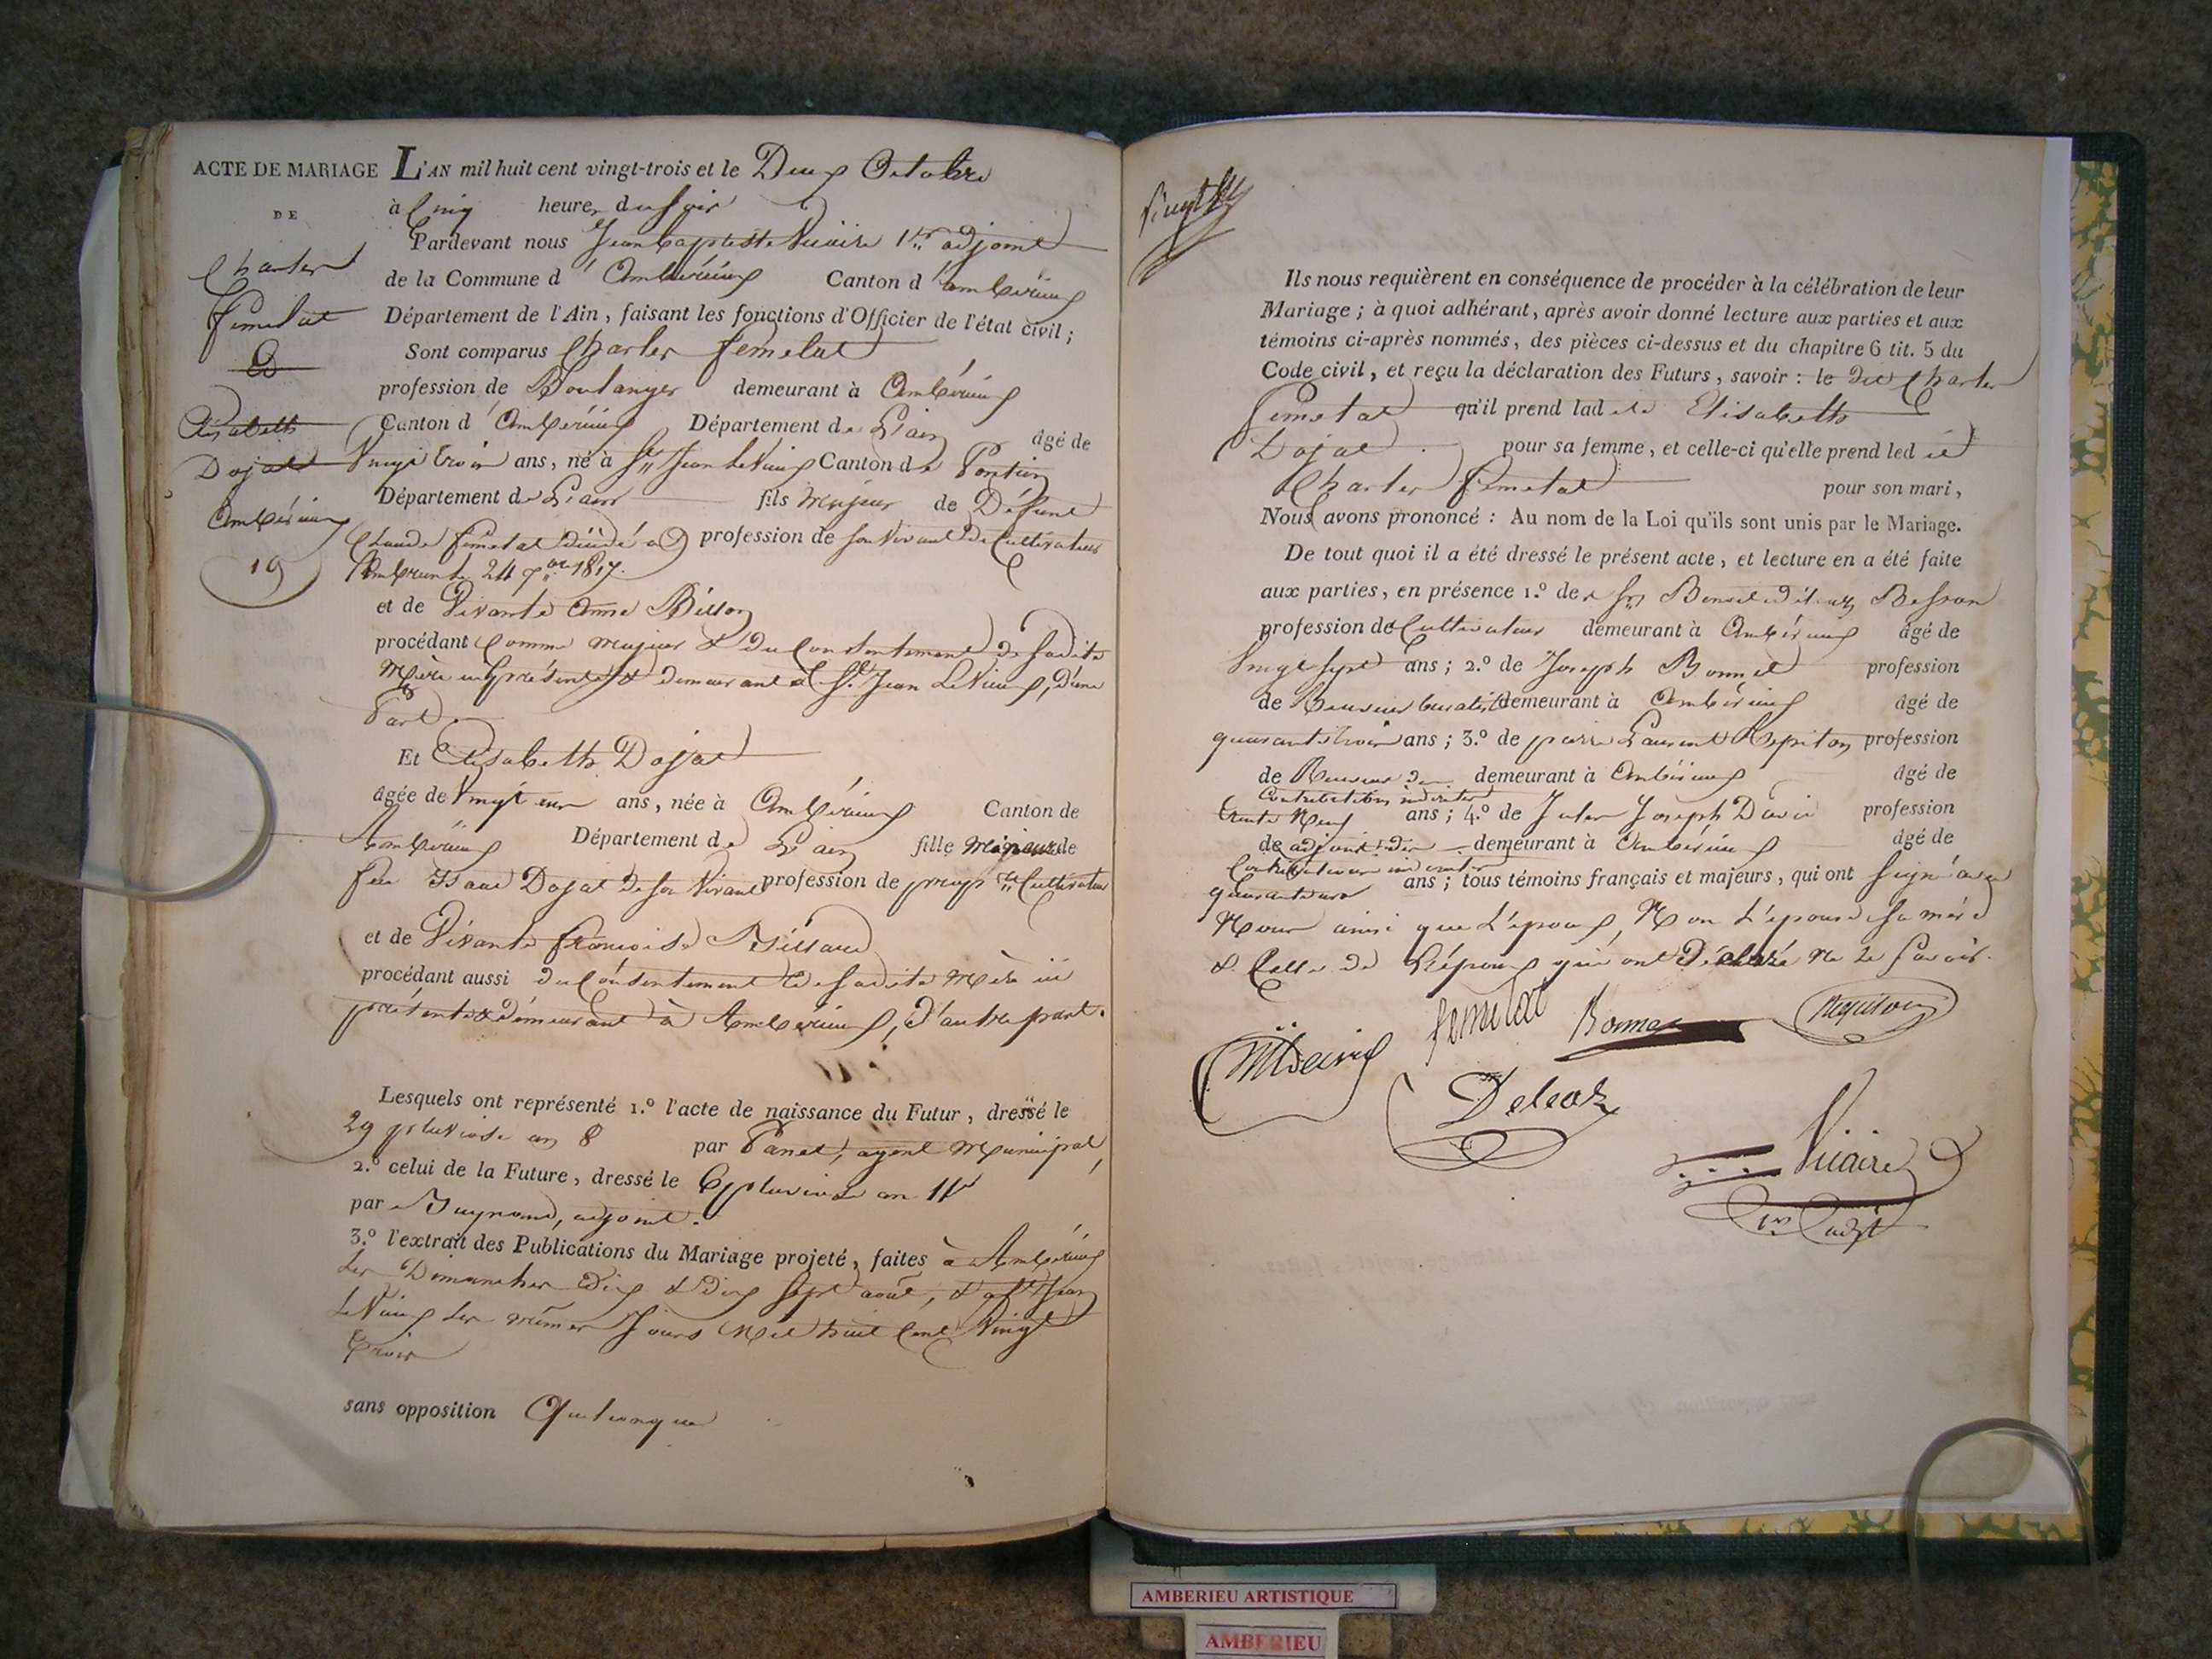 ACTE DE MARIAGE
DE
Charles
femelat
&
Elisabeth
Dojat
Ambérieux
19
L'AN mil huit cent vingt-trois et le Deux Octobre
à Cinq heures du soir
Pardevant nous Jean baptiste Vicaire 1er adjoint
de la Commune d'Ambérieux Canton d'ambérieux
Département de l'Ain, faisant les fonctions d'Officier de l'état civil;
Sont comparus Charles femelat
profession de Boulanger demeurant à Ambérieux
Canton d'Ambérieux Département de L'ain âgé de
Vingt trois ans, né à St Jean le Vieux Canton de Poncin
Département de L'ain fils Majeur de Défunt
Claude femelat décédé à profession de son Vivant de Cultivateur
le 24 7bre 1817.
et de Vivante Anne Billon
procédant Comme majeur & du Consentement de sadite
Mère ici présente & demeurant à St Jean Le Vieux, d'une
Part
Et Elisabeth Dojat
âgée de Vingt un ans, née à Ambérieux Canton de
Ambérieux Département de L'ain fille Majeure de
feu Isaac Dojat de son Vivant profession de propre Cultivateur
et de Vivante françoise
procédant aussi du Consentement de sadite Mère ici
présente & demeurant à Ambérieux, d'autre part.
Lesquels ont représenté 1.º l'acte de naissance du Futur, dressé le
29 pluviose an 8 par Panet, agent Municipal,
2.º celui de la Future, dressé le 6 pluviose an 11
par adjoint.
3.º l'extrait des Publications du Mariage projeté, faites à Ambérieux
les Dimanches Dix & Dix sept août, & à St Jean
le Vieux les mêmes Jours Mil huit Cent Vingt
trois
sans opposition Quelconque
Ils nous requièrent en conséquence de procéder à la célébration de leur
Mariage; à quoi adhérant, après avoir donné lecture aux parties et aux
témoins ci-après nommés, des pièces ci-dessus et du chapitre 6 tit. 5 du
Code civil, et reçu la déclaration des Futurs, savoir: le dit Charles
femelat qu'il prend lad ite Elisabeth
Dojat pour sa femme, et celle-ci qu'elle prend led it
Charles femelat pour son mari,
Nous avons prononcé: Au nom de la Loi qu'ils sont unis par le Mariage.
De tout quoi il a été dressé le présent acte, et lecture en a été faite
aux parties, en présence 1.º de
profession de Cultivateur demeurant à Ambérieux âgé de
Vingt sept ans; 2.º de Joseph Bonnet profession
de demeurant à Ambérieux âgé de
quarante trois ans; 3.º de pierre Laurent Repiton profession
de Receveur des demeurant à Ambérieux âgé de
Contributions indirectes
trente Neuf ans; 4.º de Jules Joseph David profession
de adjoint des demeurant à Ambérieux âgé de
Contributions indirectes
quarante un ans; tous témoins français et majeurs, qui ont signé avec
Nous ainsi que L'époux, Non L'épouse sa mère
& Celle de L'époux qui ont Déclaré Ne le Savoir.
femelat Bonnet Repiton
Vicaire
1er adjt
AMBERIEU ARTISTIQUE
AMBERIEU